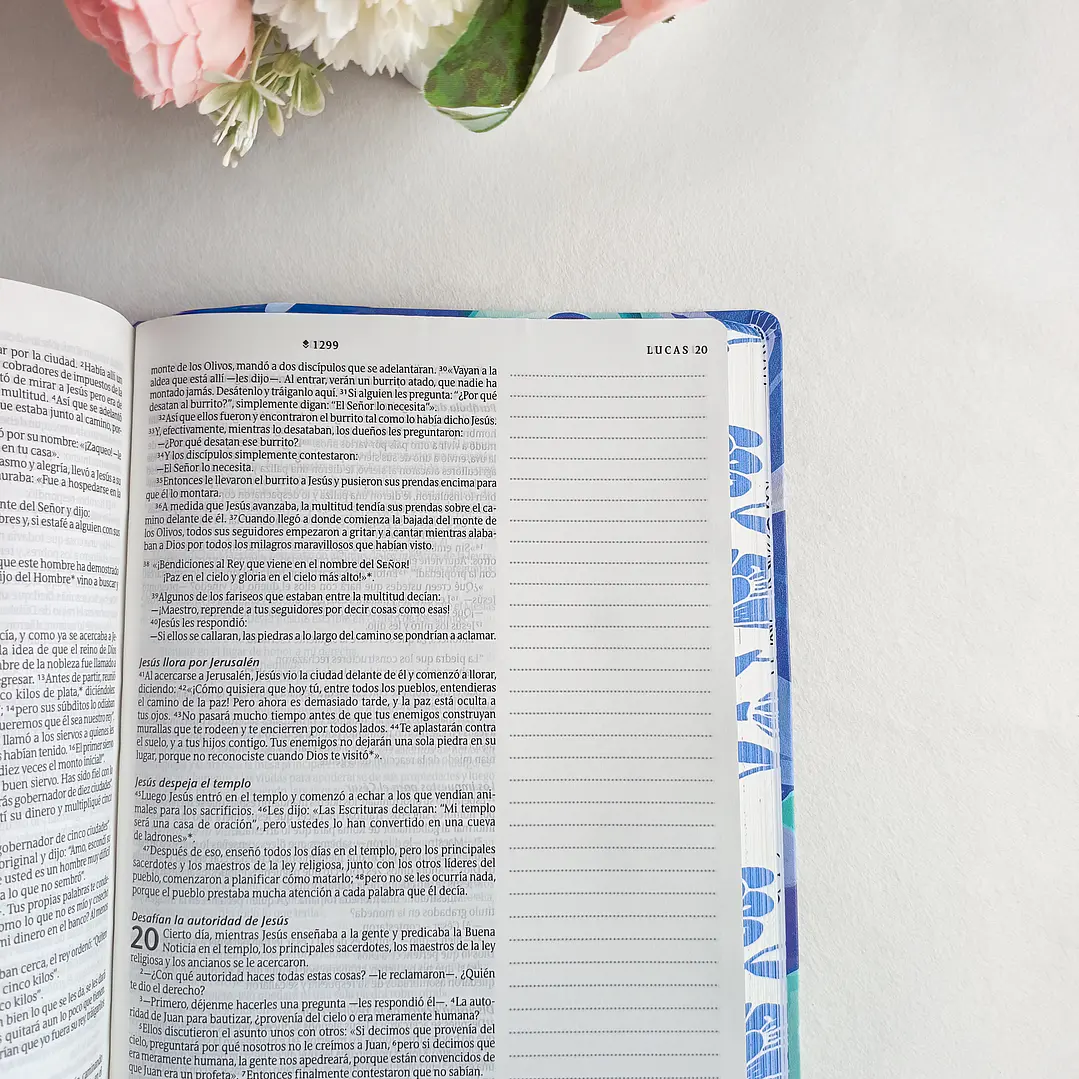 ar por la ciudad. ²Había allí un
cobradores de impuestos de la
tó de mirar a Jesús pero era de
multitud. ⁴Así que se adelantó
ue estaba junto al camino, por-
ó por su nombre: «¡Zaqueo! —le
en tu casa».
asmo y alegría, llevó a Jesús a su
muraba: «Fue a hospedarse en la
nte del Señor y dijo:
bres y, si estafé a alguien con sus
que este hombre ha demostrado
ijo del Hombre* vino a buscar y
cía, y como ya se acercaba a Je-
la idea de que el reino de Dios
bre de la nobleza fue llamado a
egresar. ¹³Antes de partir, reunió
co kilos de plata,* diciéndoles:
; ¹⁴pero sus súbditos lo odiaban
queremos que él sea nuestro rey".
llamó a los siervos a quienes les
s habían tenido. ¹⁶El primer siervo
diez veces el monto inicial!".
buen siervo. Has sido fiel con
rás gobernador de diez ciudades"
tí su dinero y multipliqué cinco
gobernador de cinco ciudades"
original y dijo: "Amo, escondí su
e usted es un hombre muy difícil
a lo que no sembró".
. Tus propias palabras te conde-
omo lo que no es mío y cosecho
mi dinero en el banco? Al menos
ban cerca, el rey ordenó: "Quiten
cinco kilos".
co kilos".
n bien lo que se les da, se les dará
quitará aun lo poco que tienen.
rían que yo fuera su rey, tráiganlos
1299
LUCAS 20
monte de los Olivos, mandó a dos discípulos que se adelantaran. ³⁰«Vayan a la
aldea que está allí —les dijo—. Al entrar, verán un burrito atado, que nadie ha
montado jamás. Desátenlo y tráiganlo aquí. ³¹Si alguien les pregunta: "¿Por qué
desatan al burrito?", simplemente digan: "El Señor lo necesita"».
³²Así que ellos fueron y encontraron el burrito tal como lo había dicho Jesús.
³³Y, efectivamente, mientras lo desataban, los dueños les preguntaron:
—¿Por qué desatan ese burrito?
³⁴Y los discípulos simplemente contestaron:
—El Señor lo necesita.
³⁵Entonces le llevaron el burrito a Jesús y pusieron sus prendas encima para
que él lo montara.
³⁶A medida que Jesús avanzaba, la multitud tendía sus prendas sobre el ca-
mino delante de él. ³⁷Cuando llegó a donde comienza la bajada del monte de
los Olivos, todos sus seguidores empezaron a gritar y a cantar mientras alaba-
ban a Dios por todos los milagros maravillosos que habían visto.
³⁸ «¡Bendiciones al Rey que viene en el nombre del SEÑOR!
¡Paz en el cielo y gloria en el cielo más alto!»*.
³⁹Algunos de los fariseos que estaban entre la multitud decían:
—¡Maestro, reprende a tus seguidores por decir cosas como esas!
⁴⁰Jesús les respondió:
—Si ellos se callaran, las piedras a lo largo del camino se pondrían a aclamar.
Jesús llora por Jerusalén
⁴¹Al acercarse a Jerusalén, Jesús vio la ciudad delante de él y comenzó a llorar,
diciendo: ⁴²«¡Cómo quisiera que hoy tú, entre todos los pueblos, entendieras
el camino de la paz! Pero ahora es demasiado tarde, y la paz está oculta a
tus ojos. ⁴³No pasará mucho tiempo antes de que tus enemigos construyan
murallas que te rodeen y te encierren por todos lados. ⁴⁴Te aplastarán contra
el suelo, y a tus hijos contigo. Tus enemigos no dejarán una sola piedra en su
lugar, porque no reconociste cuando Dios te visitó*».
Jesús despeja el templo
⁴⁵Luego Jesús entró en el templo y comenzó a echar a los que vendían ani-
males para los sacrificios. ⁴⁶Les dijo: «Las Escrituras declaran: "Mi templo
será una casa de oración", pero ustedes lo han convertido en una cueva
de ladrones»*.
⁴⁷Después de eso, enseñó todos los días en el templo, pero los principales
sacerdotes y los maestros de la ley religiosa, junto con los otros líderes del
pueblo, comenzaron a planificar cómo matarlo; ⁴⁸pero no se les ocurría nada,
porque el pueblo prestaba mucha atención a cada palabra que él decía.
Desafían la autoridad de Jesús
20 Cierto día, mientras Jesús enseñaba a la gente y predicaba la Buena
Noticia en el templo, los principales sacerdotes, los maestros de la ley
religiosa y los ancianos se le acercaron.
²—¿Con qué autoridad haces todas estas cosas? —le reclamaron—. ¿Quién
te dio el derecho?
³—Primero, déjenme hacerles una pregunta —les respondió él—. ⁴La auto-
ridad de Juan para bautizar, ¿provenía del cielo o era meramente humana?
⁵Ellos discutieron el asunto unos con otros: «Si decimos que provenía del
cielo, preguntará por qué nosotros no le creímos a Juan, ⁶pero si decimos que
era meramente humana, la gente nos apedreará, porque están convencidos de
que Juan era un profeta». ⁷Entonces finalmente contestaron que no sabían.